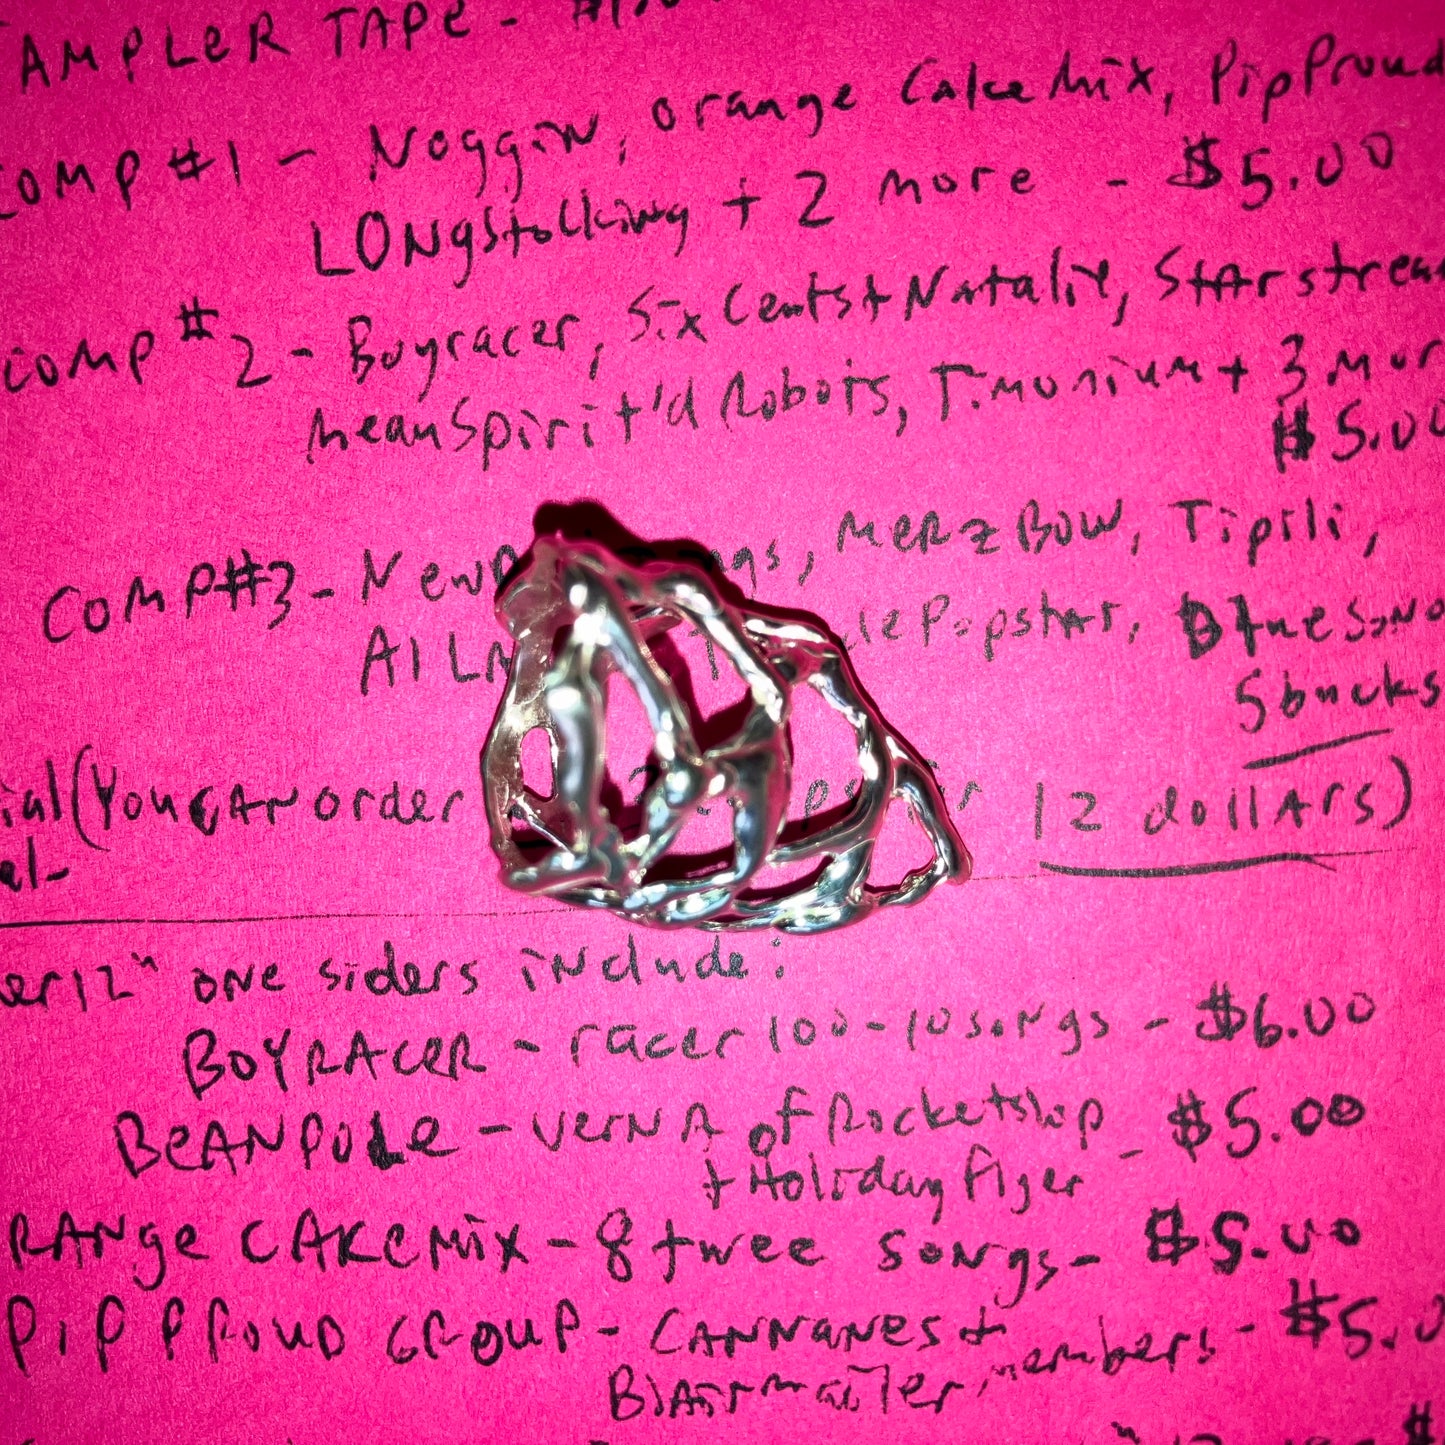 AMPLER TAPE -
COMP #1 - Noggin, orange Cake Mix, PipProud
LONgstocking + 2 more - $5.00
COMP #2 - Boyracer, Six Cents + Natalie, Starstream
MeanSpirit'd Robots, Timonium + 3 mor
$5.00
COMP #3 - New ngs, MERZBOW, Tipili,
lePopstar,
5bucks
ial (You CAN order 12 dollars)
el-
er 12" ONE siders include:
BOYRACER - racer 100 - 10 songs - $6.00
BEANPOLE - VERNA of Rocketship
+ Holiday flyer - $5.00
RANge CAKE MiX - 8 twee songs - $5.00
PiP PROUD GROUP - CANNANES +
BlAirmailer members - $5.0